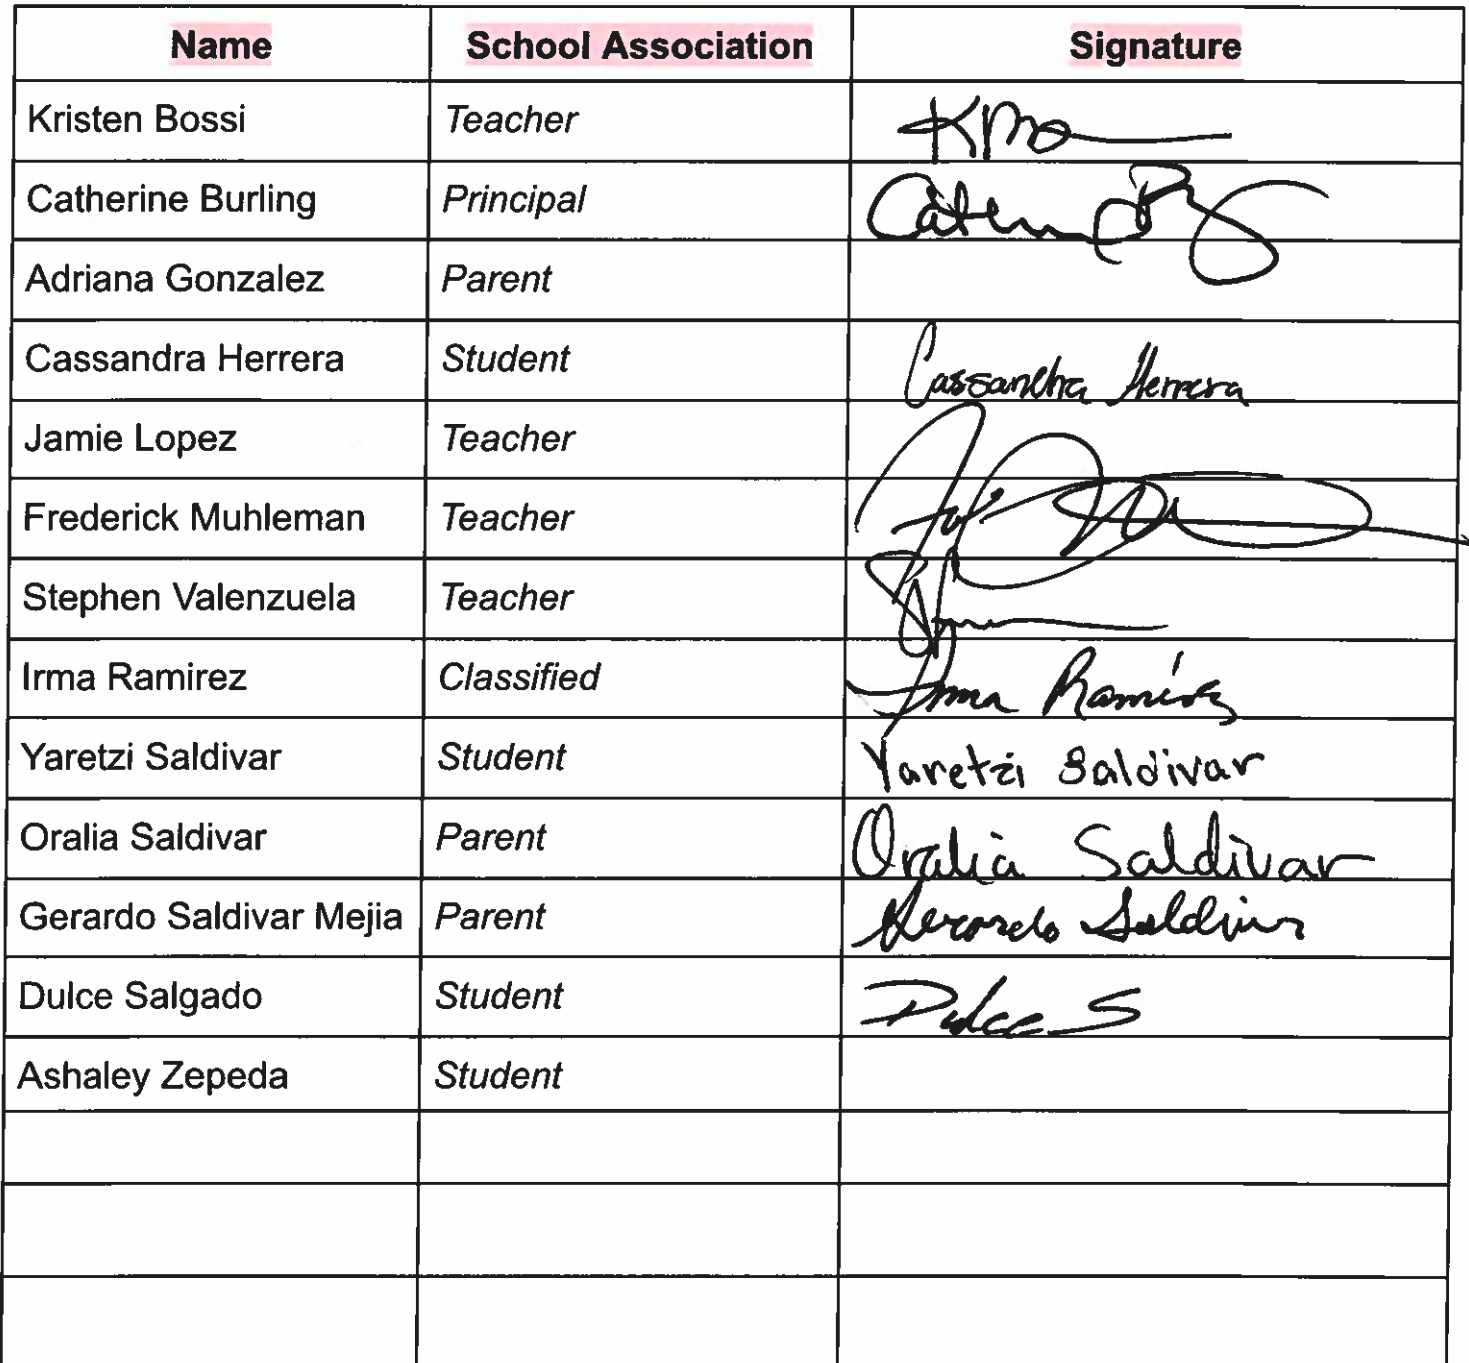 Name School Association Signature
Kristen Bossi Teacher
Catherine Burling Principal
Adriana Gonzalez Parent
Cassandra Herrera Student Cassandra Herrera
Jamie Lopez Teacher
Frederick Muhleman Teacher
Stephen Valenzuela Teacher
Irma Ramirez Classified Irma Ramírez
Yaretzi Saldivar Student Yaretzi Saldivar
Oralia Saldivar Parent Oralia Saldivar
Gerardo Saldivar Mejia Parent Gerardo Saldivar
Dulce Salgado Student Dulce S
Ashaley Zepeda Student